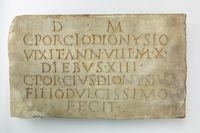 D M
C·PORCIO DIONYSIO
VIXIT·ANN·VIII·M·X·
DIEBVS·XIII·
C·PORCIVS·DIONYSIVS
FILIO DVLCISSIMO
FECIT·